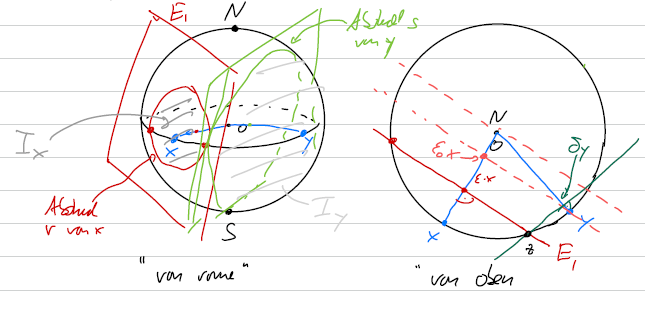 E₁
N
Abstand s
von y
I_x
x
0
y
Abstand
r von x
I_y
S
"von vorne"
N
0
ε₀x
δy
ε·x
x
y
z
E₁
"von oben